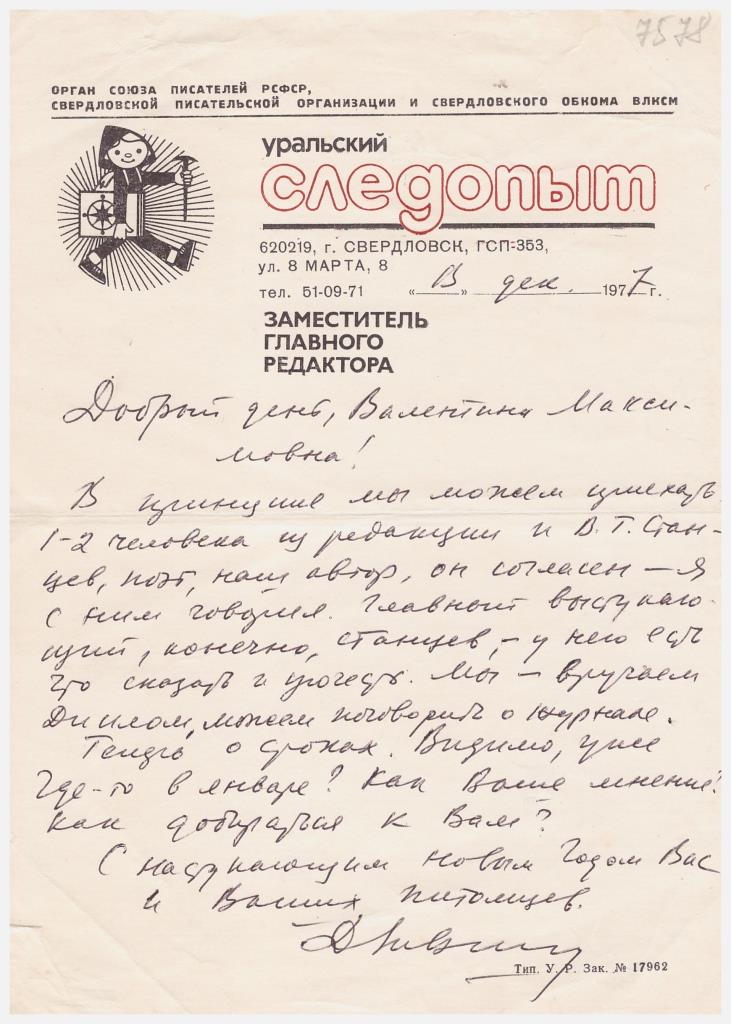 7578
ОРГАН СОЮЗА ПИСАТЕЛЕЙ РСФСР,
СВЕРДЛОВСКОЙ ПИСАТЕЛЬСКОЙ ОРГАНИЗАЦИИ И СВЕРДЛОВСКОГО ОБКОМА ВЛКСМ
уральский
следопыт
620219, г. СВЕРДЛОВСК, ГСП-353,
ул. 8 МАРТА, 8
тел. 51-09-71 « » дек. 1977 г.
ЗАМЕСТИТЕЛЬ
ГЛАВНОГО
РЕДАКТОРА
Добрый день, Валентина Макси-
мовна!
В принципе мы можем приехать
1-2 человека из редакции и В. Т. Стан-
цев, поэт, наш автор, он согласен – я
с ним говорил. Главный выступаю-
щий, конечно, Станцев, – у него есть
что сказать и прочесть. Мы – вручаем
Диплом, можем поговорить о журнале.
Теперь о сроках. Видимо, уже
где-то в январе? Как Ваше мнение?
Как добираться к Вам?
С наступающим Новым Годом Вас
и Ваших питомцев.
Тип. У. Р. Зак. № 17962